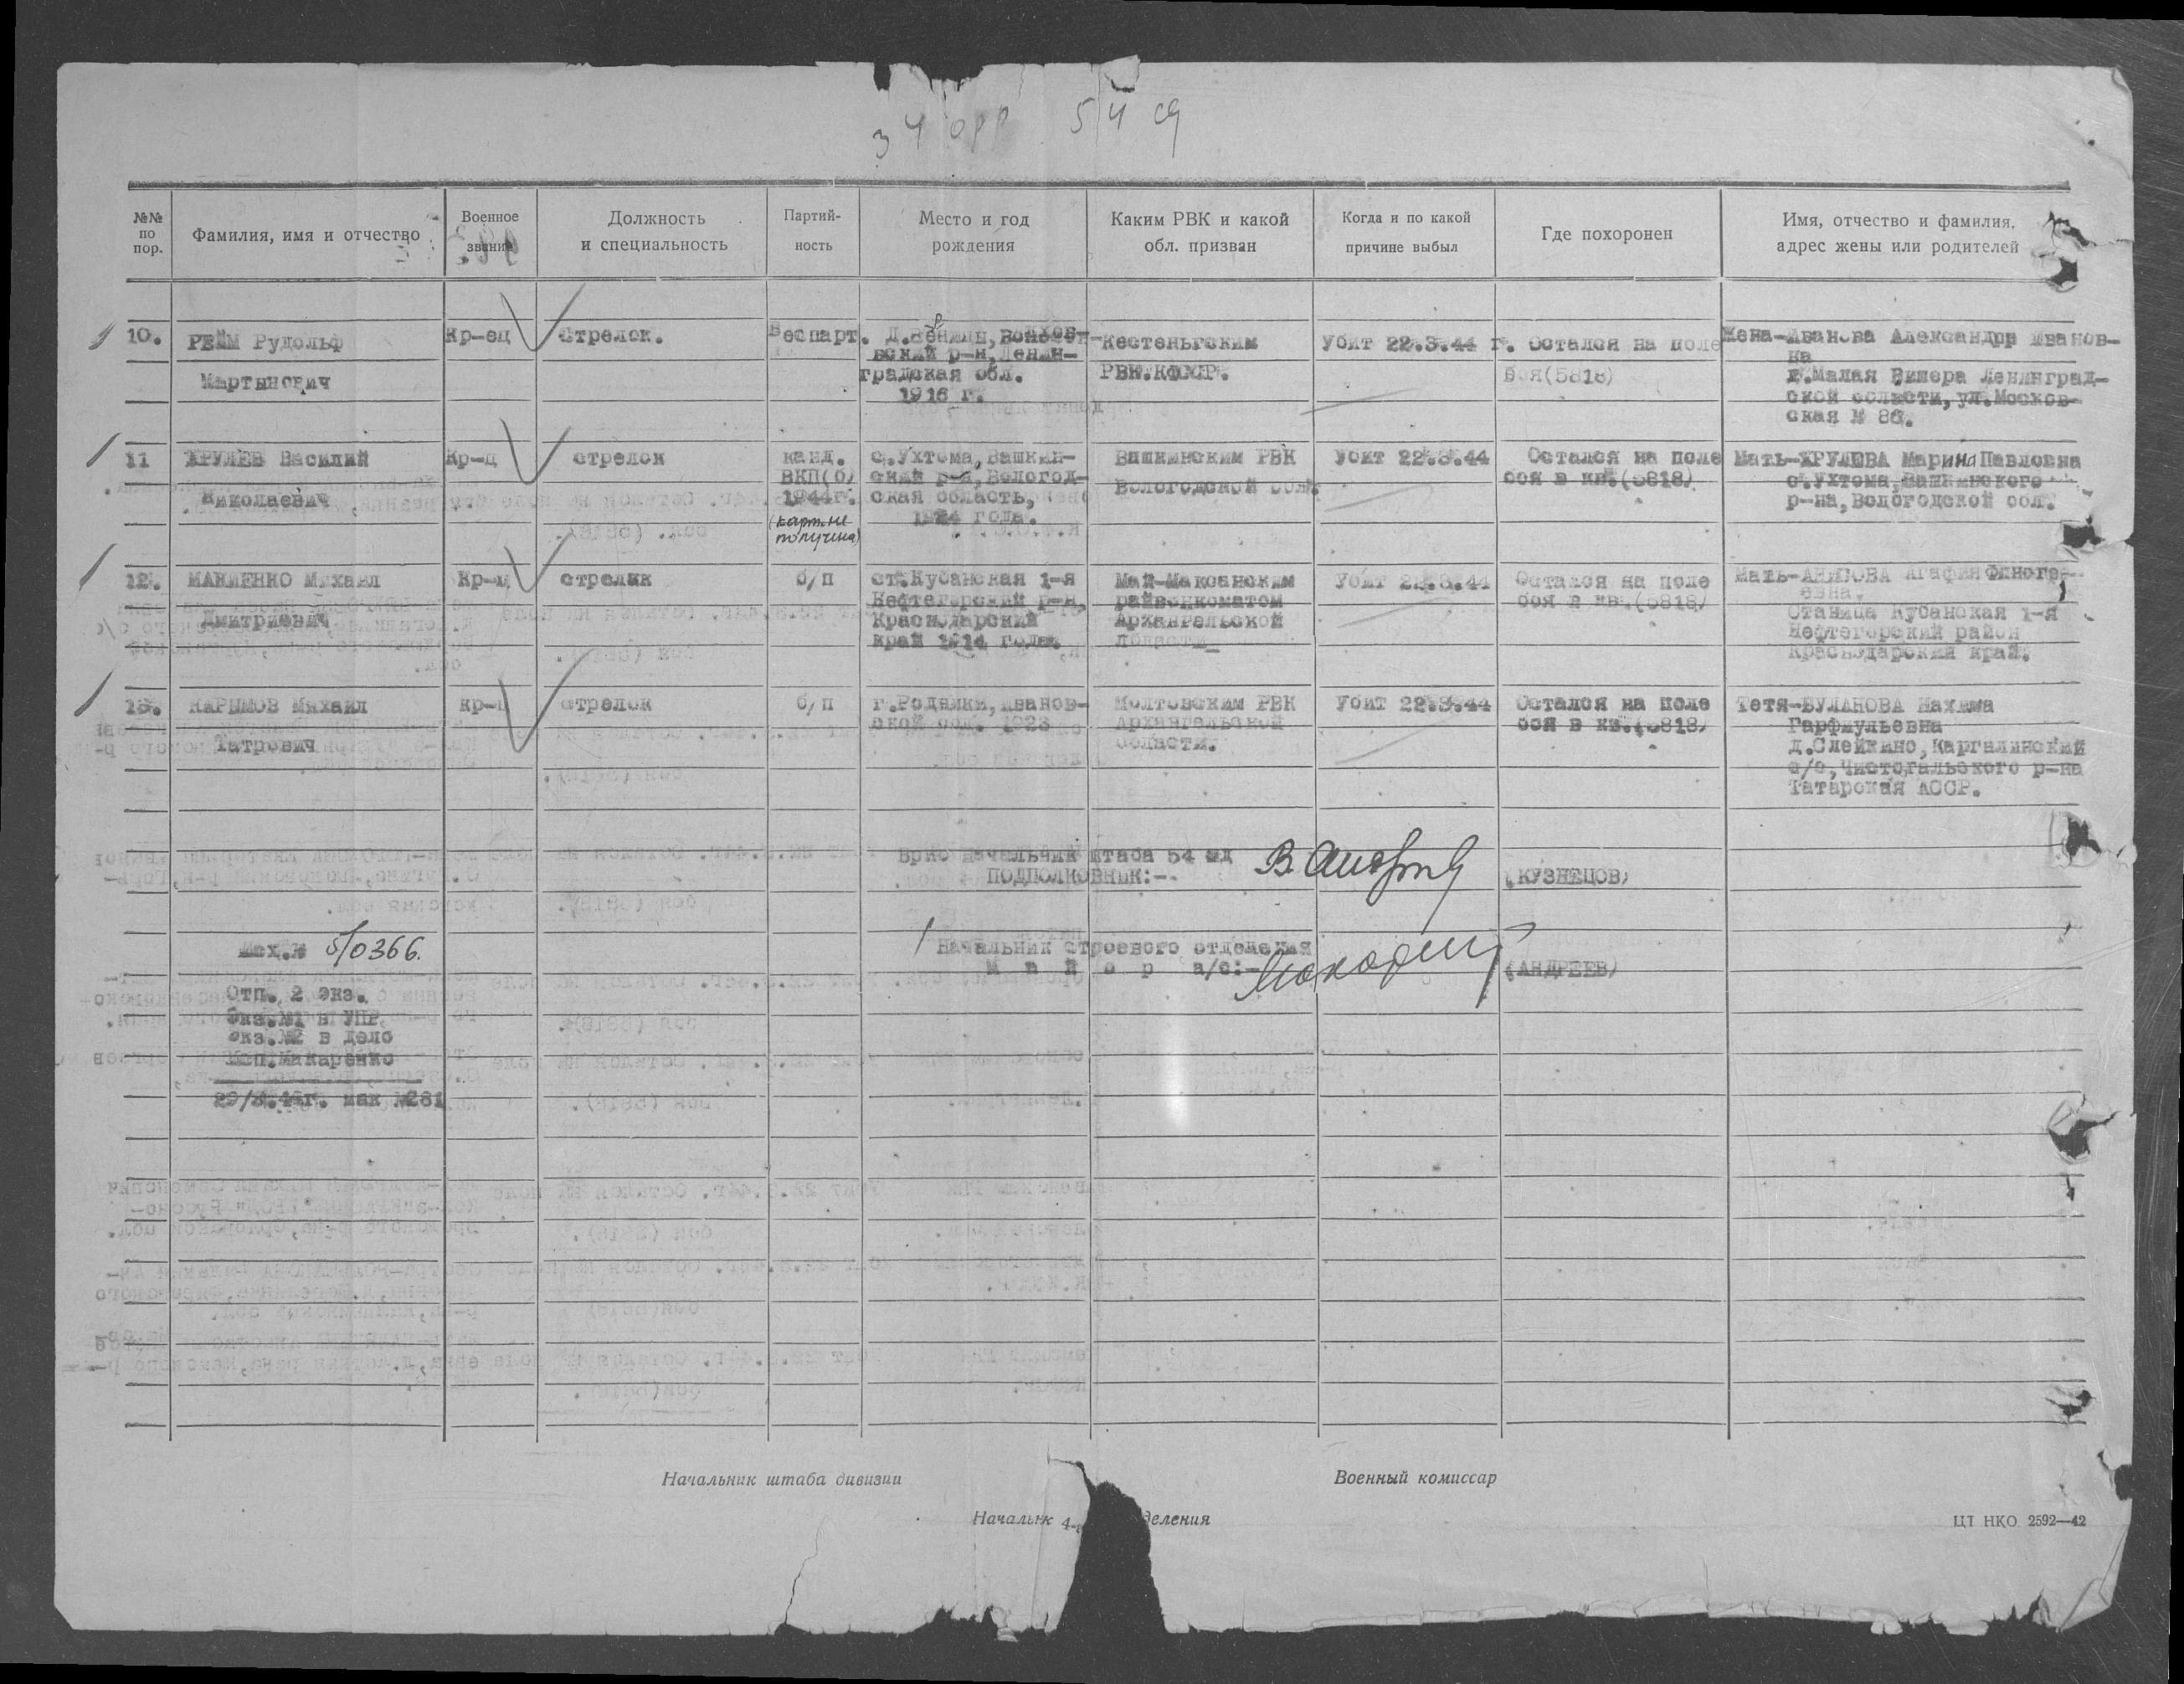 34 орр 54 сд
№№ по пор.
Фамилия, имя и отчество
Военное звание
Должность и специальность
Партий-
ность
Место и год рождения
Каким РВК и какой обл. призван
Когда и по какой причине выбыл
Где похоронен
Имя, отчество и фамилия,
адрес жены или родителей
10.
РЕЙМ Рудольф
Мартынович
Кр-ец
Стрелок.
Беспарт.
вский р-н, Ленин-
градская обл.
1916 г.
Кестеньгским
РВК.КФССР.
Убит 22.3.44 г.
Остался на поле
боя(5818)
Жена-Иванова Александра Иванов-
на
г.Малая Вишера Ленинград-
ской области, ул.Москов-
ская № 86.
11
ХРУЛЕВ Василий
Николаевич
Кр-ц
стрелок
канд.
ВКП(б)
1944г.
(карт.не
получена)
с.Ухтома, Вашкин-
ский р-н, Вологод-
ская область,
1924 года.
Вашкинским РВК
Вологодской обл.
Убит 22.3.44
Остался на поле
боя в кв.(5818)
Мать-ХРУЛЕВА Марина Павловна
с.Ухтома, Вашкинского
р-на, Вологодской обл.
12.
МАКМЕНКО Михаил
Дмитриевич
Кр-ц
стрелок
б/п
ст.Кубанская 1-я
Нефтегорский р-н,
Краснодарский
край 1914 года.
Май-Максанским
райвоенкоматом
Архангельской
области
Убит 22.3.44
Остался на поле
боя в кв.(5818)
Мать-АКИМОВА Агафия Финоге-
евна.
Станица Кубанская 1-я
Нефтегорский район
Краснодарский край.
13.
КАРЫМОВ Михаил
Татрович
кр-ц
стрелок
б/п
г.Родники, Иванов-
ской обл. 1923
Молтовским РВК
Архангельской
области.
Убит 22.3.44
Остался на поле
боя в кв.(5818)
Тетя-БУЛАНОВА Нахима
Гарфиульевна
д.Слейкино, Каргалинский
с/с, Чистогальского р-на
Татарская АССР.
Врио начальник штаба 54 сд
ПОДПОЛКОВНИК:-
(КУЗНЕЦОВ)
Исх.№ 5/0366.
Начальник строевого отделения
м а й о р а/с:-
(АНДРЕЕВ)
Отп. 2 экз.
Экз.№1 в УПР.
экз.№2 в дело
Исп.Макаренко
29/3.44г. мак №281
Начальник штаба дивизии
Военный комиссар
Начальник 4-
деления
ЦТ НКО 2592—42